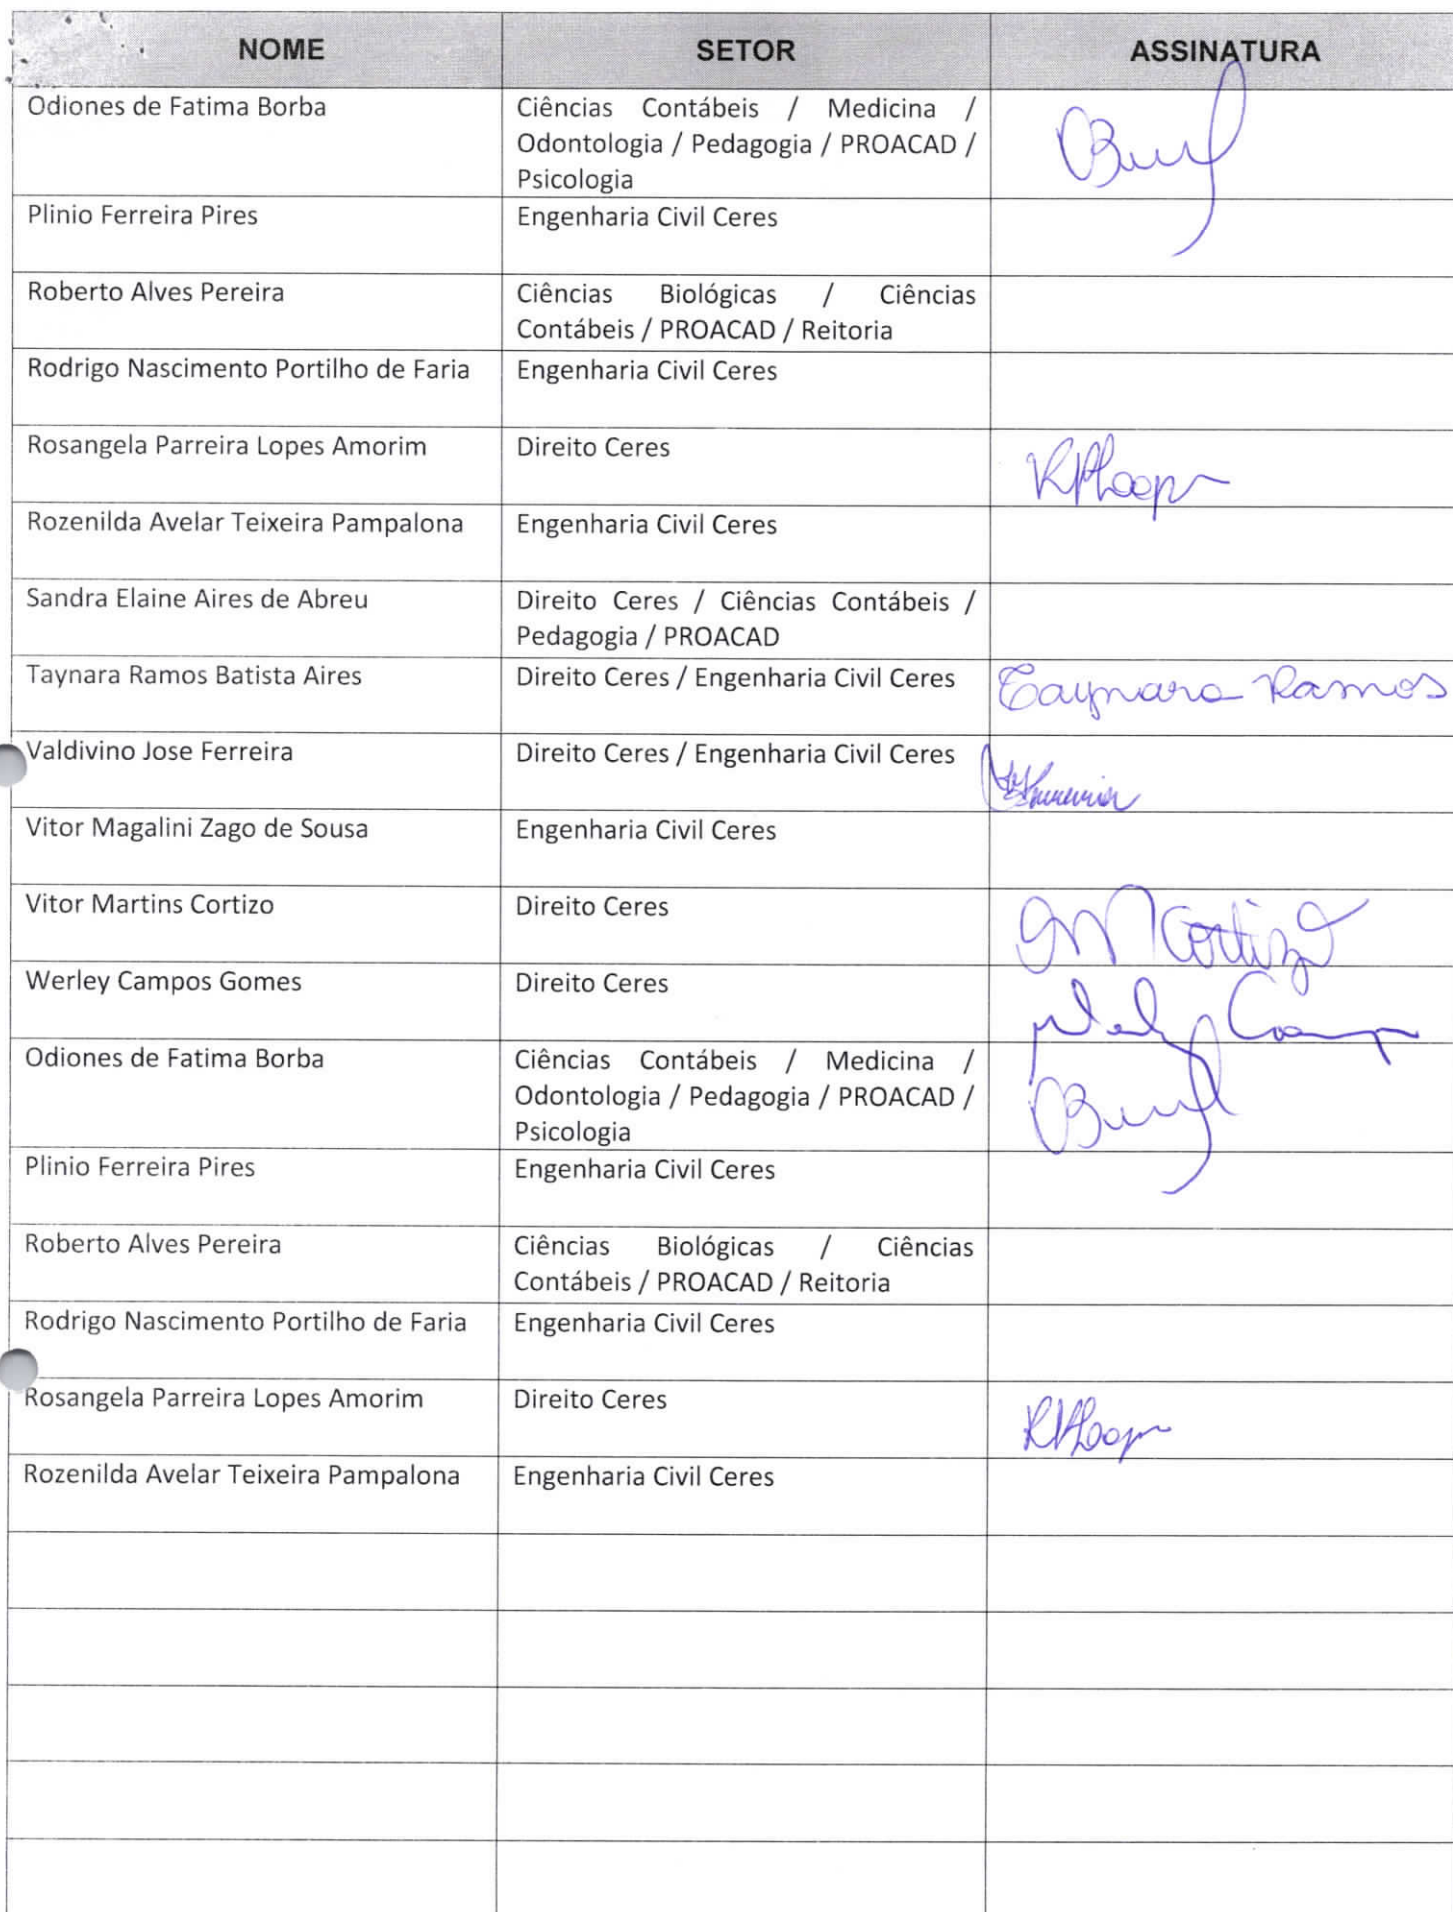 NOME SETOR ASSINATURA
Odiones de Fatima Borba Ciências Contábeis / Medicina /
Odontologia / Pedagogia / PROACAD /
Psicologia
Plinio Ferreira Pires Engenharia Civil Ceres
Roberto Alves Pereira Ciências Biológicas / Ciências
Contábeis / PROACAD / Reitoria
Rodrigo Nascimento Portilho de Faria Engenharia Civil Ceres
Rosangela Parreira Lopes Amorim Direito Ceres
Rozenilda Avelar Teixeira Pampalona Engenharia Civil Ceres
Sandra Elaine Aires de Abreu Direito Ceres / Ciências Contábeis /
Pedagogia / PROACAD
Taynara Ramos Batista Aires Direito Ceres / Engenharia Civil Ceres Taynara Ramos
Valdivino Jose Ferreira Direito Ceres / Engenharia Civil Ceres
Vitor Magalini Zago de Sousa Engenharia Civil Ceres
Vitor Martins Cortizo Direito Ceres Cortizo
Werley Campos Gomes Direito Ceres
Odiones de Fatima Borba Ciências Contábeis / Medicina /
Odontologia / Pedagogia / PROACAD /
Psicologia
Plinio Ferreira Pires Engenharia Civil Ceres
Roberto Alves Pereira Ciências Biológicas / Ciências
Contábeis / PROACAD / Reitoria
Rodrigo Nascimento Portilho de Faria Engenharia Civil Ceres
Rosangela Parreira Lopes Amorim Direito Ceres
Rozenilda Avelar Teixeira Pampalona Engenharia Civil Ceres